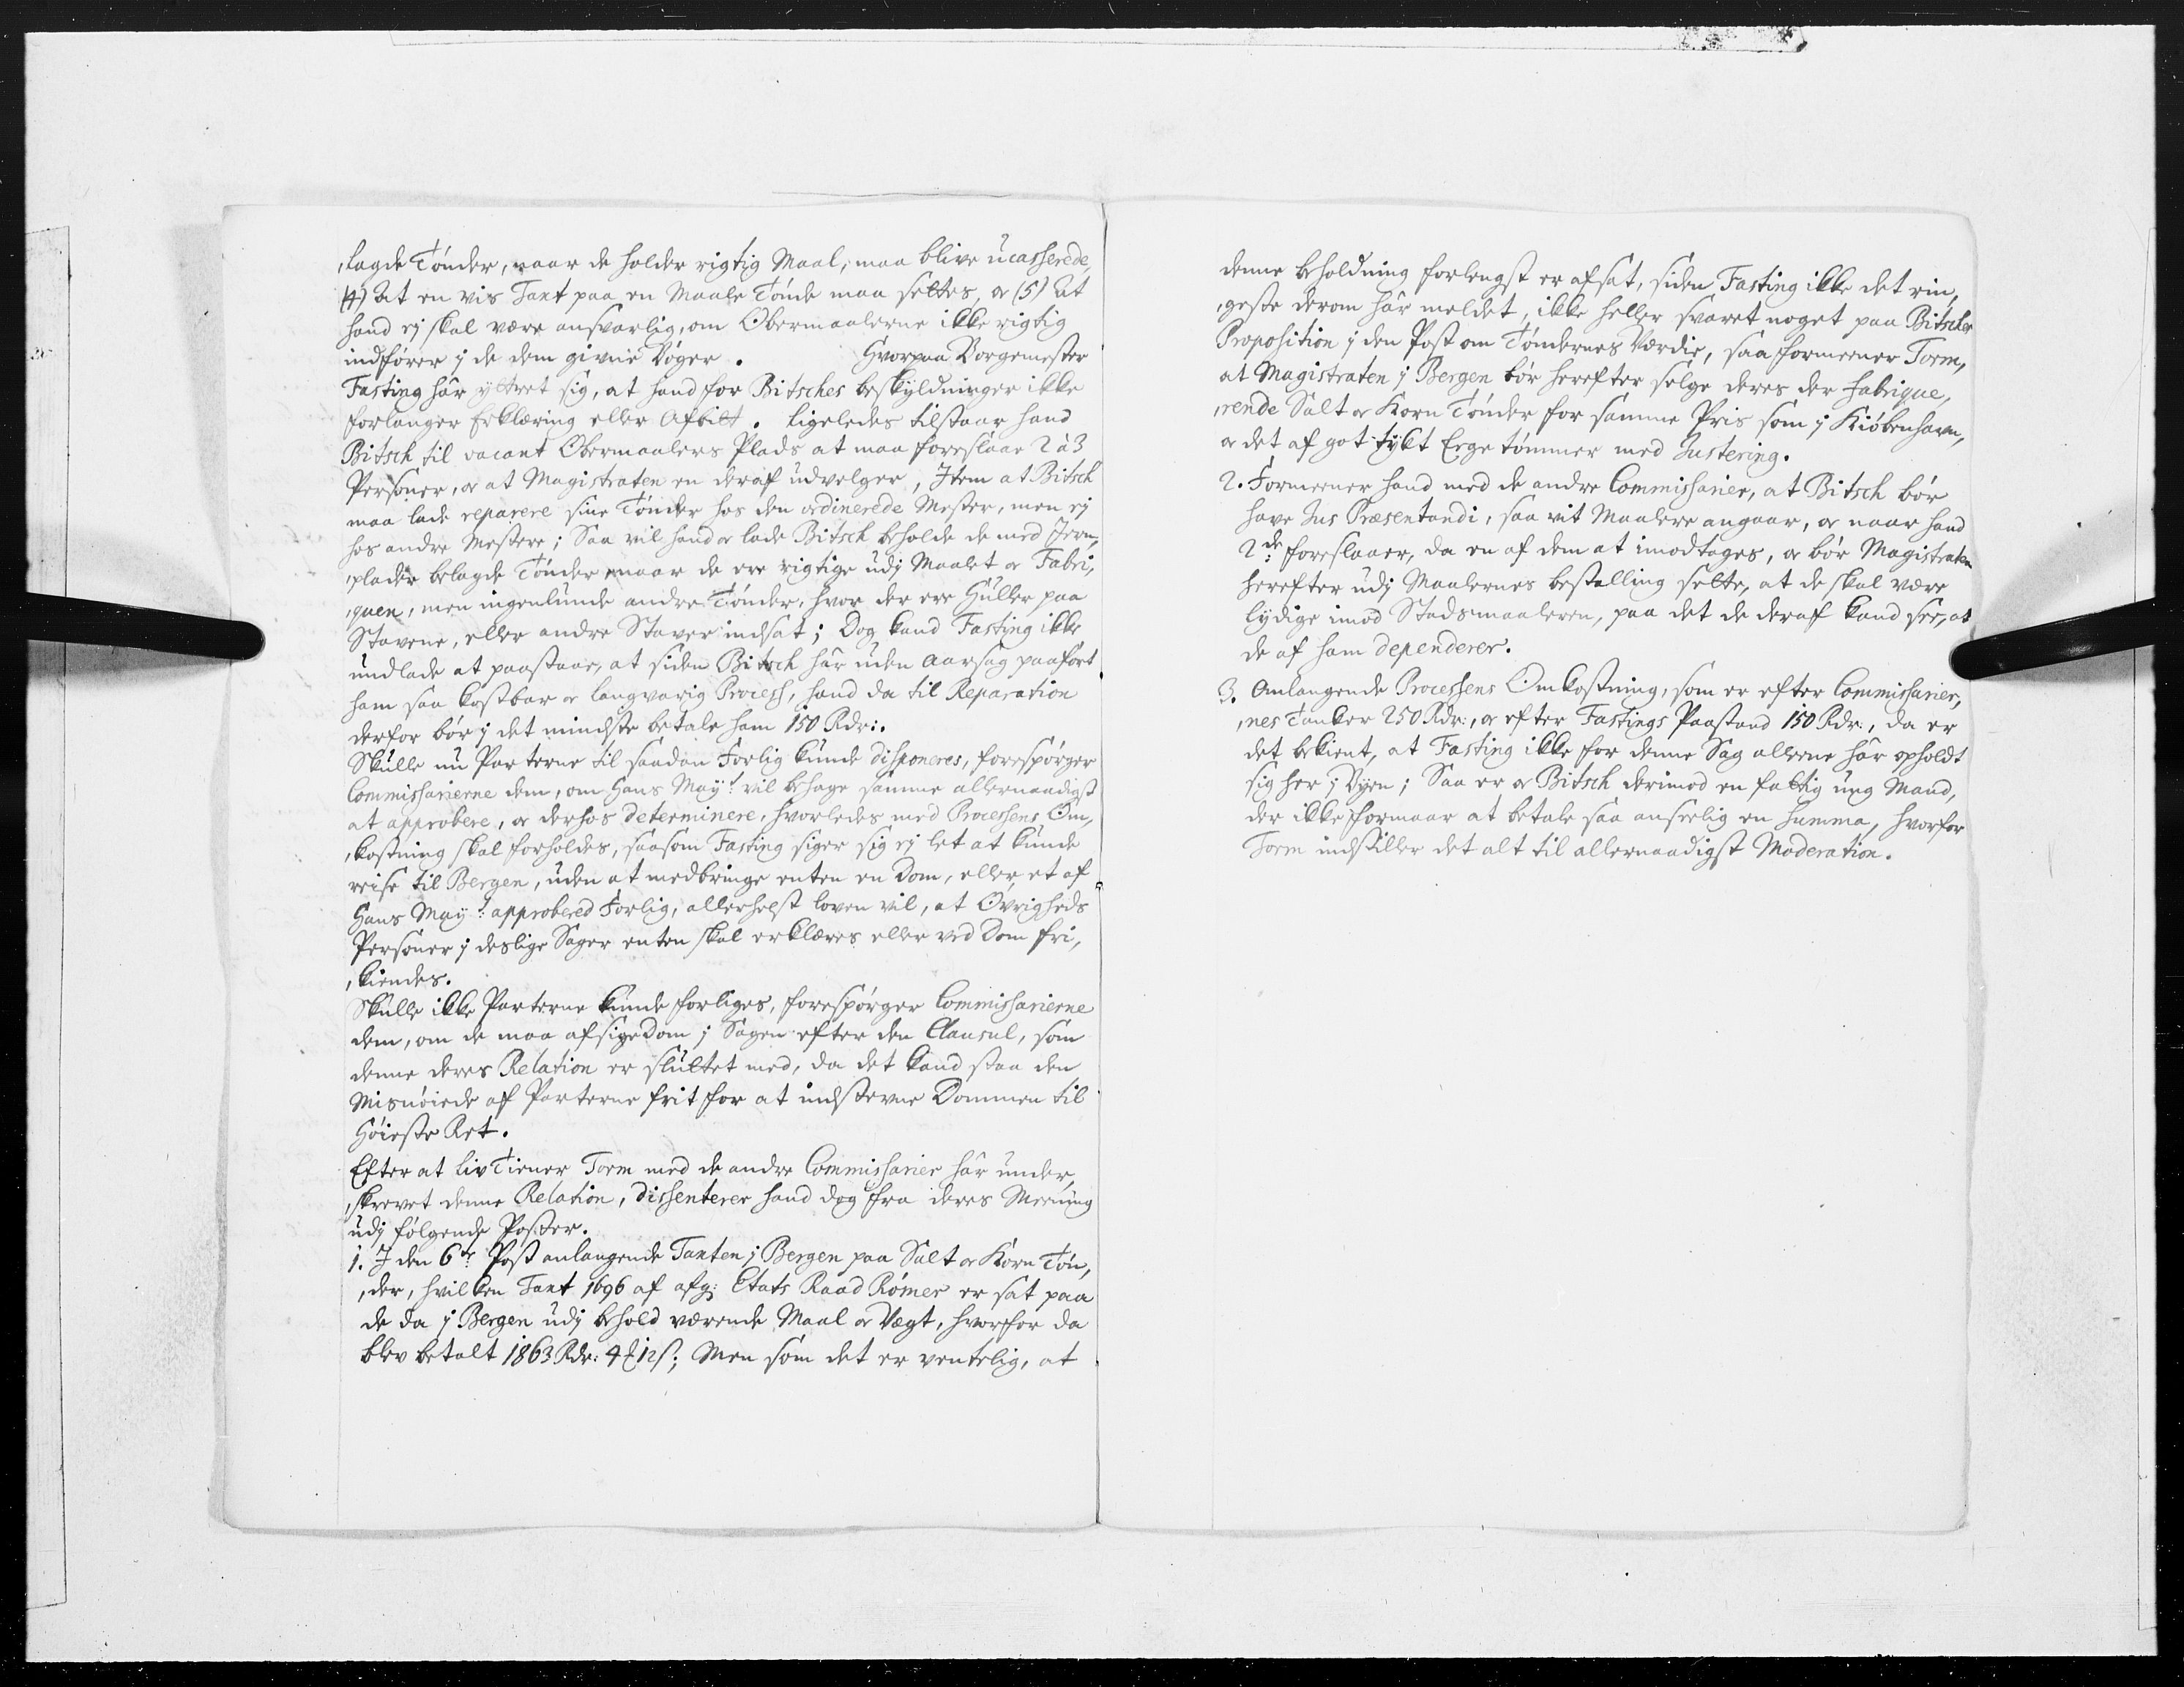 ,lagde Tønder, naar de holder rigtig Maal, maa blive ucasserede,
(4) At en vis Taxt paa en Maale Tønde maa settes, og (5) At
hand ej skal være ansvarlig, om Obermaalerne ikke rigtig
indfører j de dem givne Bøger. Hvorpaa Borgemester
Fasting har yttret sig, at hand for Bitsches beskyldninger ikke
forlanger Erklæring eller Afbitt. Ligeledes tilstaar hand
Bitsch til vacant Obermaalers Plads at maa foreslaae 2 à 3
Personer, og at Magistraten en deraf udvelger, Item at Bitsch
maa lade reparere sine Tønder hos den ordinerede Mester, men ej
hos andre Mestere; Saa vil hand og lade Bitsch beholde de med Jern,
,plader belagde Tønder, naar de ere rigtige udj Maalet og Fabri,
,quen, men ingenlunde andre Tønder, hvor der ere Huller paa
Stavene, eller andre Staver indsat; Dog kand Fasting ikke
undlade at paastaae, at siden Bitsch har uden Aarsag paaført
ham saa kostbar og langvarig Process, hand da til Reparation
derfor bør j det mindste betale ham 150 Rdr:.
Skulle nu Parterne til saadan Forlig kunde disponeres, forespørger
Commissarierne dem, om Hans May.t vil behage samme allernaadigst
at approbere, og derhos determinere, hvorledes med Processens Om,
,kostning skal forholdes, saasom Fasting siger sig ej let at kunde
reise til Bergen, uden at medbringe enten en Dom, eller et af
Hans May.t approbered Forlig, allerhelst loven vil, at Øvrigheds
Personer j deslige Sager enten skal erklæres eller ved Dom fri,
,kiendes.
Skulle ikke Parterne kunde forliges, forespørger Commissarierne
dem, om de maa afsige Dom j Sagen efter den Clausul, som
denne deres Relation er sluttet med, da det kand staa den
Misnøiede af Parterne frit for at indstevne Dommen til
Høieste Ret.
Efter at Liv Tiener Torm med de andre Commissarier har under,
,skrevet denne Relation, dissenterer hand dog fra deres Meening
udj følgende Poster.
1. J den 6te Post anlangende Taxten j Bergen paa Salt og Korn Tøn,
,der, hvilken Taxt 1696 af afg: Etats Raad Rømer er sat paa
de da j Bergen udj behold værende Maal og Vægt, hvorfor da
blev betalt 1863 Rdr: 4 ₰ 12 ß; Men som det er ventelig, at
denne beholdning forlengst er afsat, siden Fasting ikke det rin,
,geste derom har meldet, ikke heller svaret noget paa Bitsches
Proposition j den Post om Tøndernes Værdie, saa formeener Torm,
at Magistraten j Bergen bør herefter selge deres der fabrique,
,rende Salt og Korn Tønder for samme Pris som j Kiøbenhavn,
og det af got tykt Ege tømmer med Justering.
2. Formeener hand med de andre Commissarier, at Bitsch bør
have Jus Præsentandi, saa vit Maalere angaar, og naar hand
2de foreslaaer, da en af dem at imodtages, og bør Magistraten
herefter udj Maalernes bestalling sette, at de skal være
lydige imod Stadsmaaleren, paa det de deraf kand see, at
de af ham dependerer.
3. Anlangende Processens Omkostning, som er efter Commissarier,
,nes Tanker 250 Rdr:, og efter Fastings Paastand 150 Rdr:, da er
det bekient, at Fasting ikke for denne Sag alleene har opholdt
sig her j Byen; Saa er og Bitsch derimod en fattig ung Mand,
der ikke formaar at betale saa anseelig en Summa, hvorfor
Torm indstiller det alt til allernaadigst Moderation.